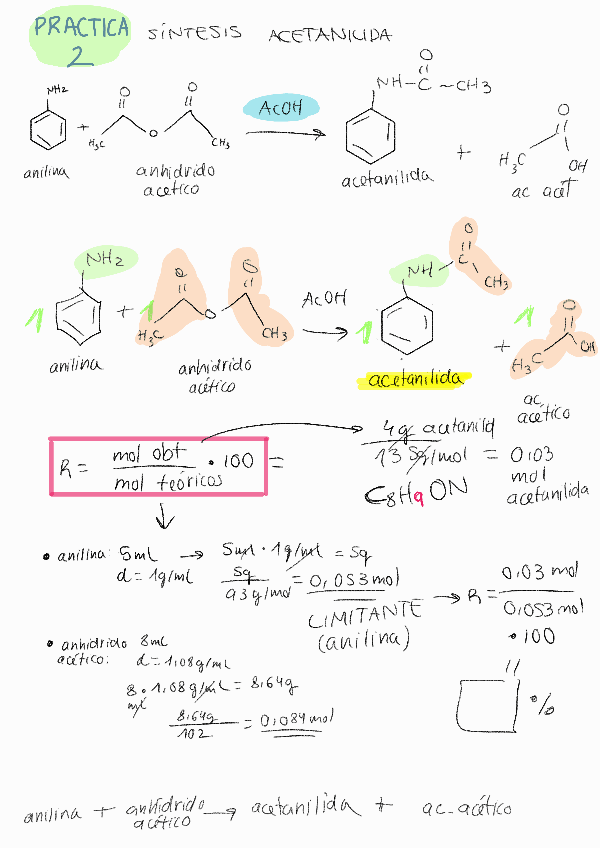 PRACTICA 2 SÍNTESIS ACETANICIDA
NH2 O O AcOH NH-C-CH3 O
+ H3C O CH3
anilina anhidrido acético acetanilida + H3C OH
ac acét
NH2 O O AcOH NH C O CH3
1 + 1 H3C O CH3 1 + 1 H3C O
anilina anhidrido acético acetanilida ac acético
R = mol obt / mol teóricos • 100 =
4g acetanild / 135g/mol = 0,03 mol acetanilida
C8H9ON
• anilina: 5ml → 5ml • 1g/ml = 5g
d = 1g/ml 5g / 93g/mol = 0,053 mol
LIMITANTE (anilina) → R = 0,03 mol / 0,053 mol • 100
• anhidrido acético: 8ml
d = 1,08g/ml
8 ml • 1,08g/ml = 8,64g
8,64g / 102 = 0,084 mol
%
anilina + anhidrido acético → acetanilida + ac. acético